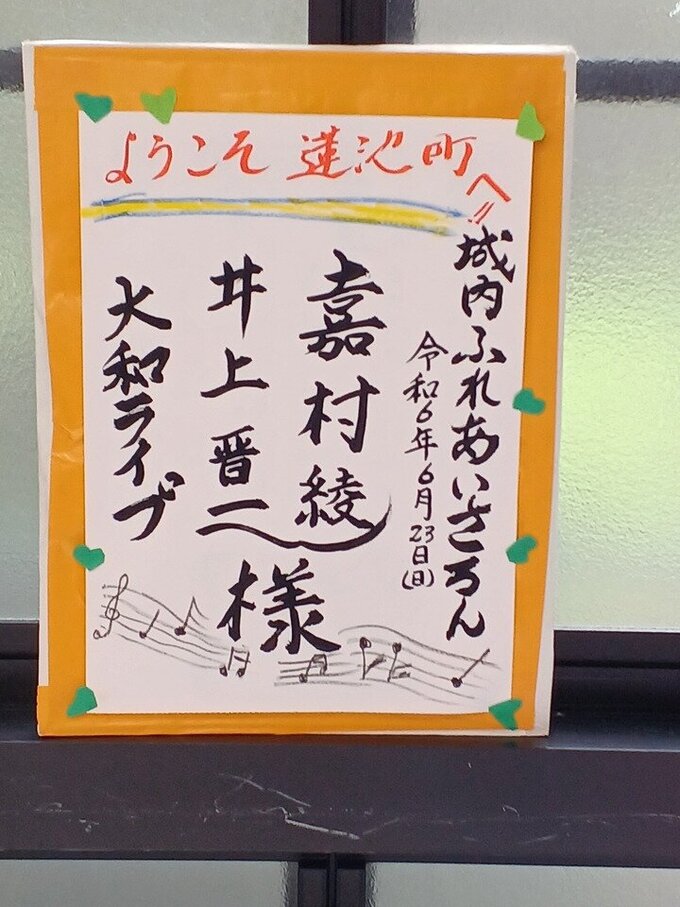 ようこそ 蓮池町へ!!
城内ふれあいさろん
令和6年6月23日(日)
嘉村綾
井上晋一
様
大和ライブ